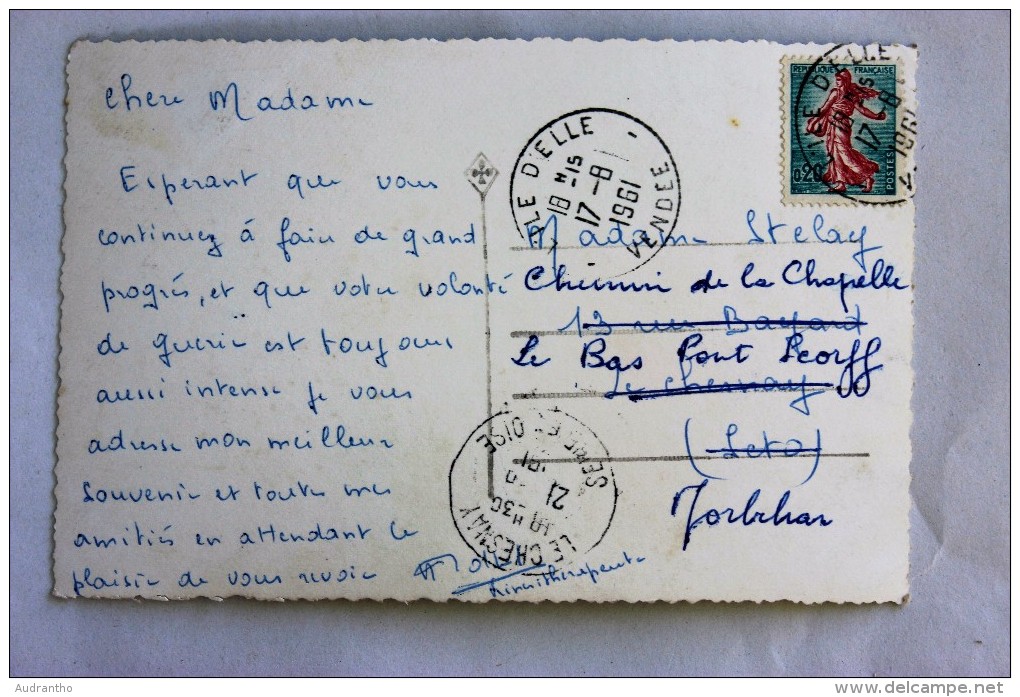 Chere Madame
Esperant que vous
continuez á faire de grand
progrés, et que votre volonté
de guerir est toujours
aussi intense je vous
adresse mon meilleur
souvenir et toutes mes
amitiés en attendant le
plaisir de vous revoir
kinésithérapeute
ILE D'ELLE
VENDEE
18 H 15
17 -8
1961
REPUBLIQUE FRANÇAISE
0,20
POSTES
Madame Stelay
Chemin de la Chapelle
13 rue Bayard
Le Bas Pont Scorff
Le Chesnay
(S et O)
Morbihan
LE CHESNAY
SEINE ET OISE
18 H 30
21
Audrantho
delcampe.net